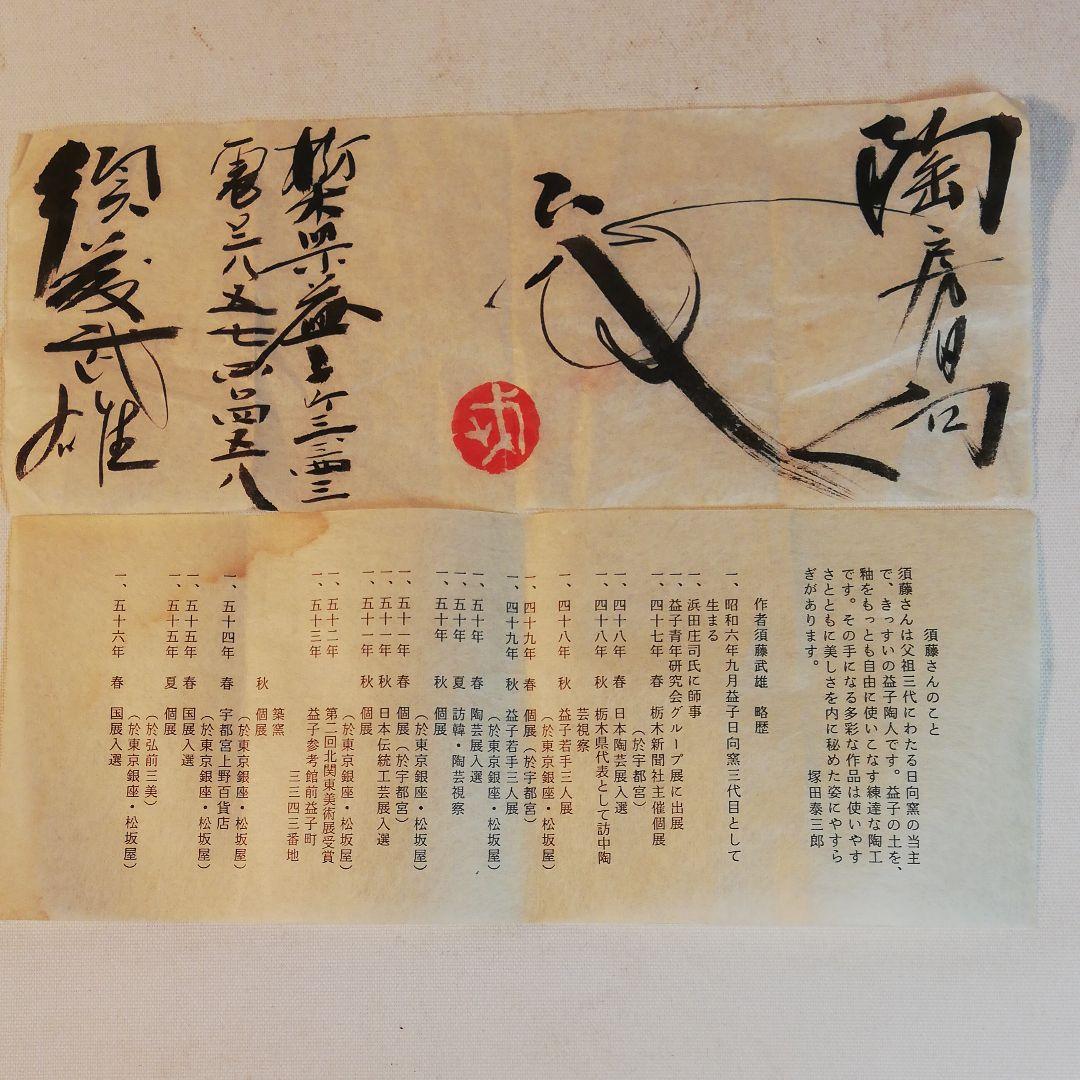 陶房日向
栃木県益子町三三四三
電〇二八五七四四五八
須藤武雄
須藤さんのこと
須藤さんは父祖三代にわたる日向窯の当主
で、きっすいの益子陶人です。益子の土を、
釉をもっとも自由に使いこなす練達な陶工
です。その手になる多彩な作品は使いやす
さとともに美しさを内に秘めた姿にやすら
ぎがあります。
塚田泰三郎
作者須藤武雄 略歴
一、昭和六年九月益子日向窯三代目として
生まる
一、浜田庄司氏に師事
一、益子青年研究会グループ展に出展
一、四十七年 春 栃木新聞社主催個展
(於宇都宮)
一、四十八年 春 日本陶芸展入選
一、四十八年 秋 栃木県代表として訪中陶
芸視察
一、四十八年 秋 益子若手三人展
(於東京銀座・松坂屋)
一、四十九年 春 個展(於宇都宮)
一、四十九年 秋 益子若手三人展
(於東京銀座・松坂屋)
一、五十年 春 陶芸展入選
一、五十年 夏 訪韓・陶芸視察
一、五十年 秋 個展
(於東京銀座・松坂屋)
一、五十一年 春 個展(於宇都宮)
一、五十一年 秋 日本伝統工芸展入選
一、五十一年 秋 個展
(於東京銀座・松坂屋)
一、五十二年 第二回北関東美術展受賞
一、五十三年 益子参考館前益子町
三三四三番地
築窯
秋 個展
(於東京銀座・松坂屋)
一、五十四年 春 宇都宮上野百貨店
(於東京銀座・松坂屋)
一、五十五年 春 国展入選
一、五十五年 夏 個展
(於弘前三美)
(於東京銀座・松坂屋)
一、五十六年 春 国展入選